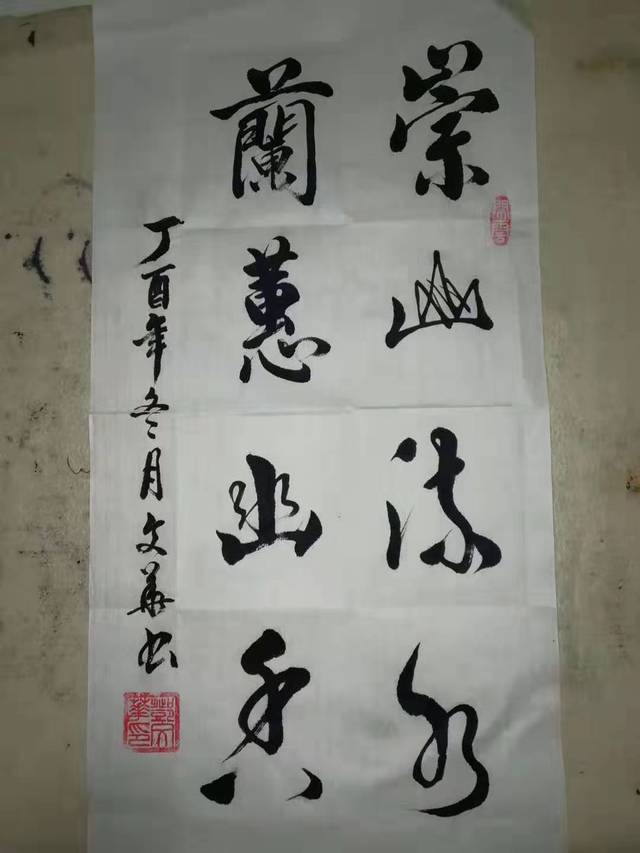 崇流水
蘭蕙幽香
丁酉年冬月文華书